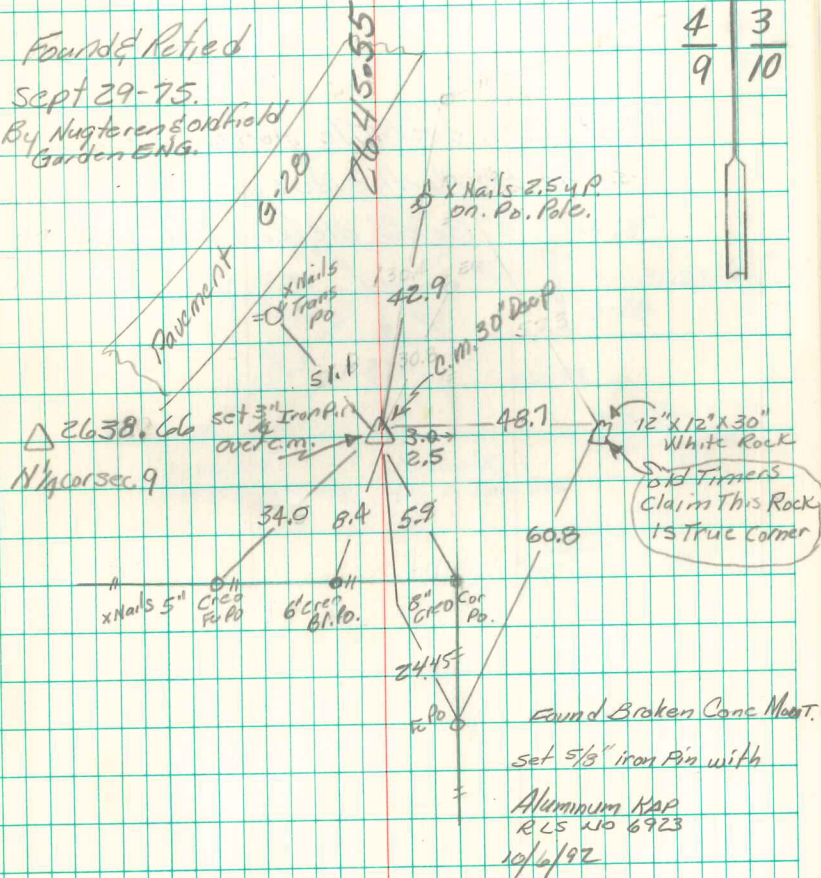 Found & Retied
Sept 29-75.
By Nugteren & Oldfield
Garden ENG.
2645.55
4 | 3
9 | 10
Pavement G-28
x Nails 2.5 up.
on. Po. Pole.
x Nails
Trans
Po
42.9
51.1
C.M. 30" Deep
△ 2638.66
N¼ cor sec. 9
set ¾" Iron Pin
over c.m.
3.0→
2.5
48.7
12" x 12" x 30"
White Rock
Old Timers
Claim This Rock
Is True Corner
34.0
8.4
5.9
60.8
x Nails 5" Creo
Fn Po
6" Creo
Bl. Po.
8" Creo
Cor
Po.
24.45
Fn Po
Found Broken Conc Mont.
Set 5/8" iron Pin with
Aluminum KAP
RLS NO 6923
10/6/92